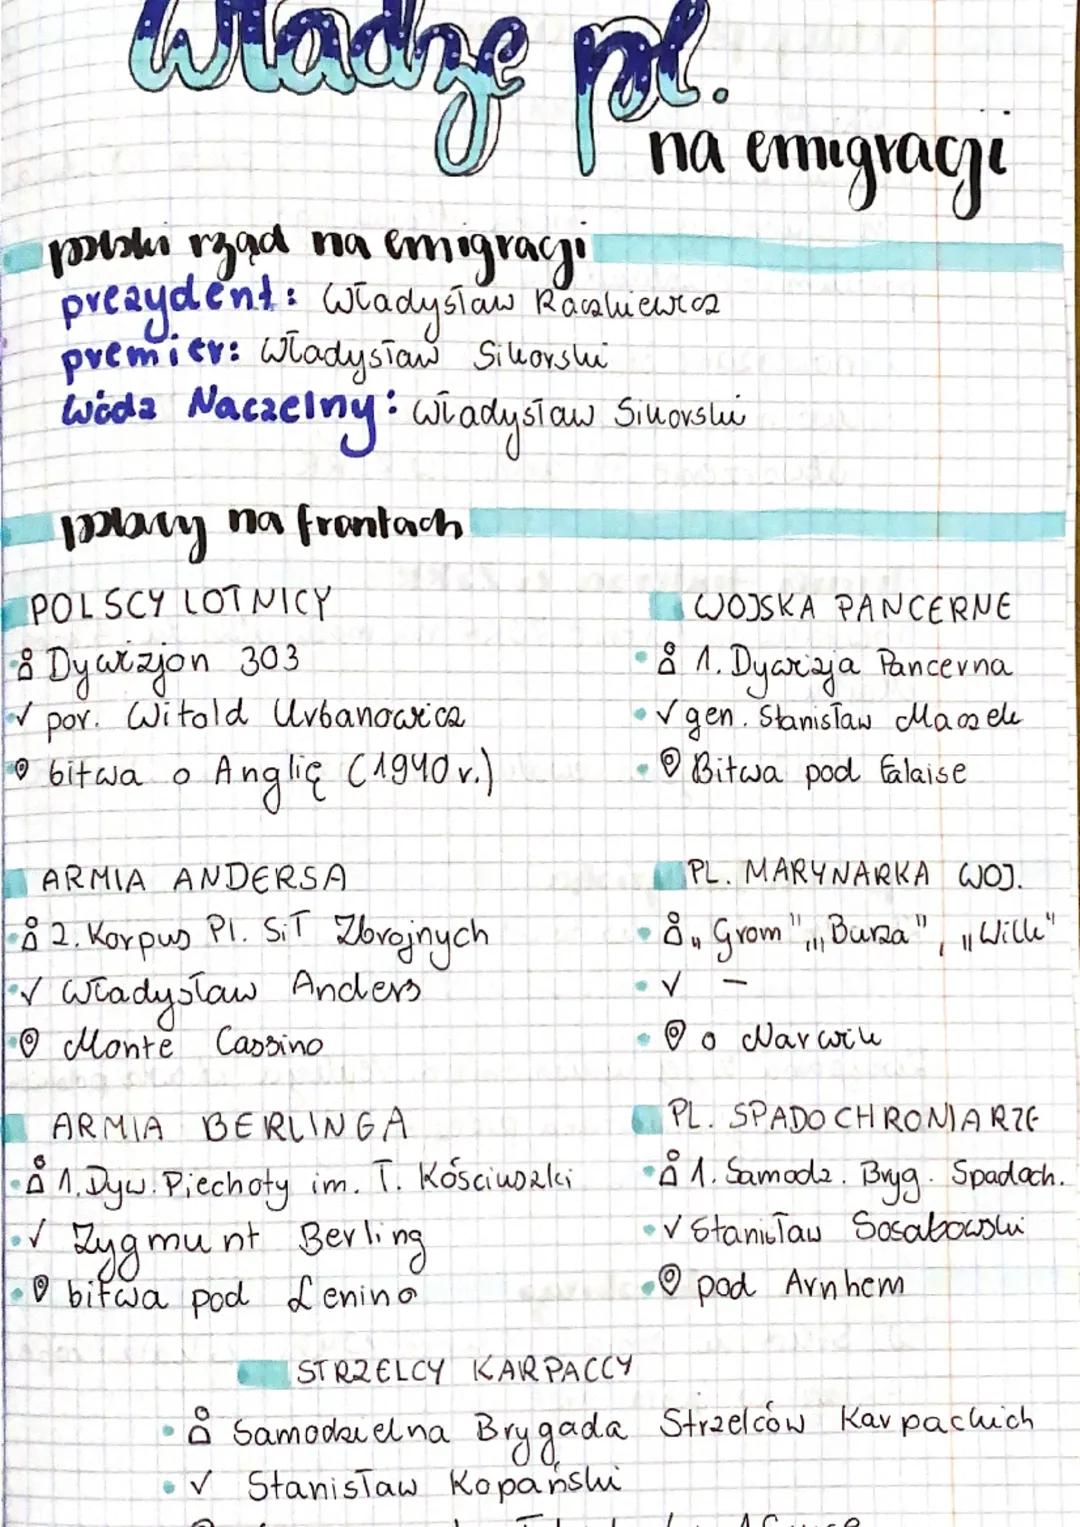 Władze pol.
na emigracji
polski rząd na emigracji
prezydent: Władysław Raczkiewicz
premier: Władysław Sikorski
Wódz Naczelny: Władysław Sikorski
polacy na frontach
POLSCY LOTNICY
Dywizjon 303
✓ por. Witold Urbanowicz
bitwa o Anglię (1940 r.)
WOJSKA PANCERNE
1. Dywizja Pancerna
✓ gen. Stanisław Maczek
Bitwa pod Falaise
ARMIA ANDERSA
2. Korpus Pl. Sił Zbrojnych
✓ Władysław Anders
Monte Cassino
PL. MARYNARKA WOJ.
„Grom", „Burza", „Wilk"
✓ –
o Narwik
ARMIA BERLINGA
1. Dyw. Piechoty im. T. Kościuszki
✓ Zygmunt Berling
bitwa pod Lenino
PL. SPADOCHRONIARZE
1. Samodz. Bryg. Spadoch.
✓ Stanisław Sosabowski
pod Arnhem
STRZELCY KARPACCY
Samodzielna Brygada Strzelców Karpackich
✓ Stanisław Kopański